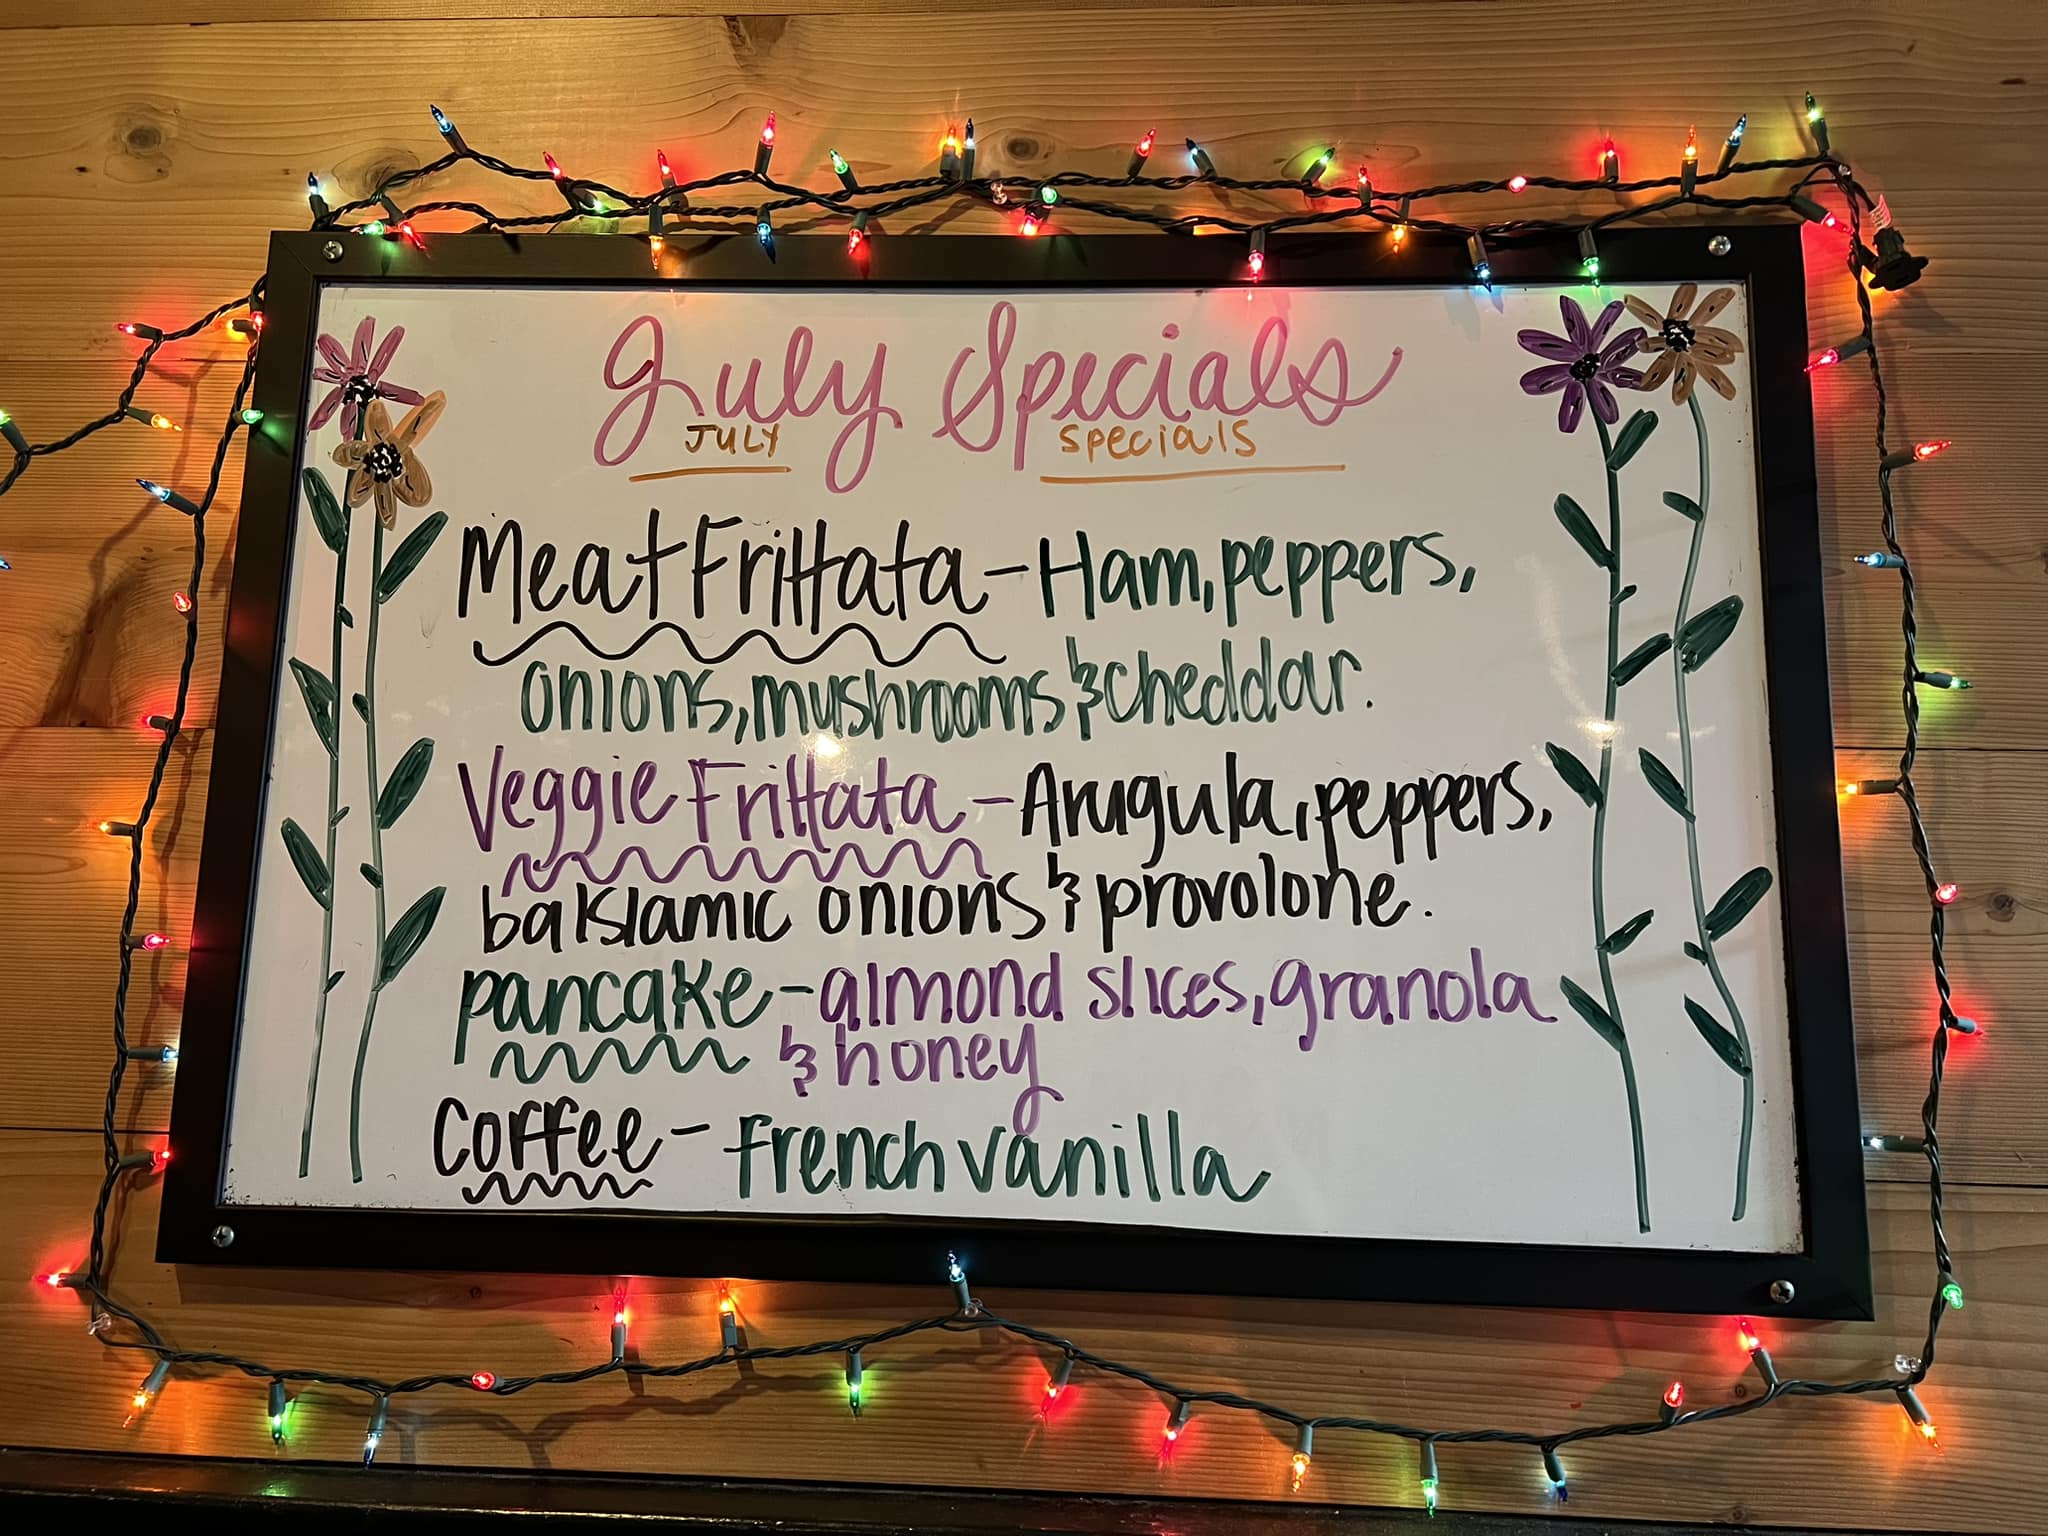 July Specials
JULY specials
Meat Frittata - Ham, peppers,
onions, mushrooms & cheddar.
Veggie Frittata - Arugula, peppers,
balsiamic onions & provolone.
pancake - almond slices, granola
& honey
Coffee - french vanilla